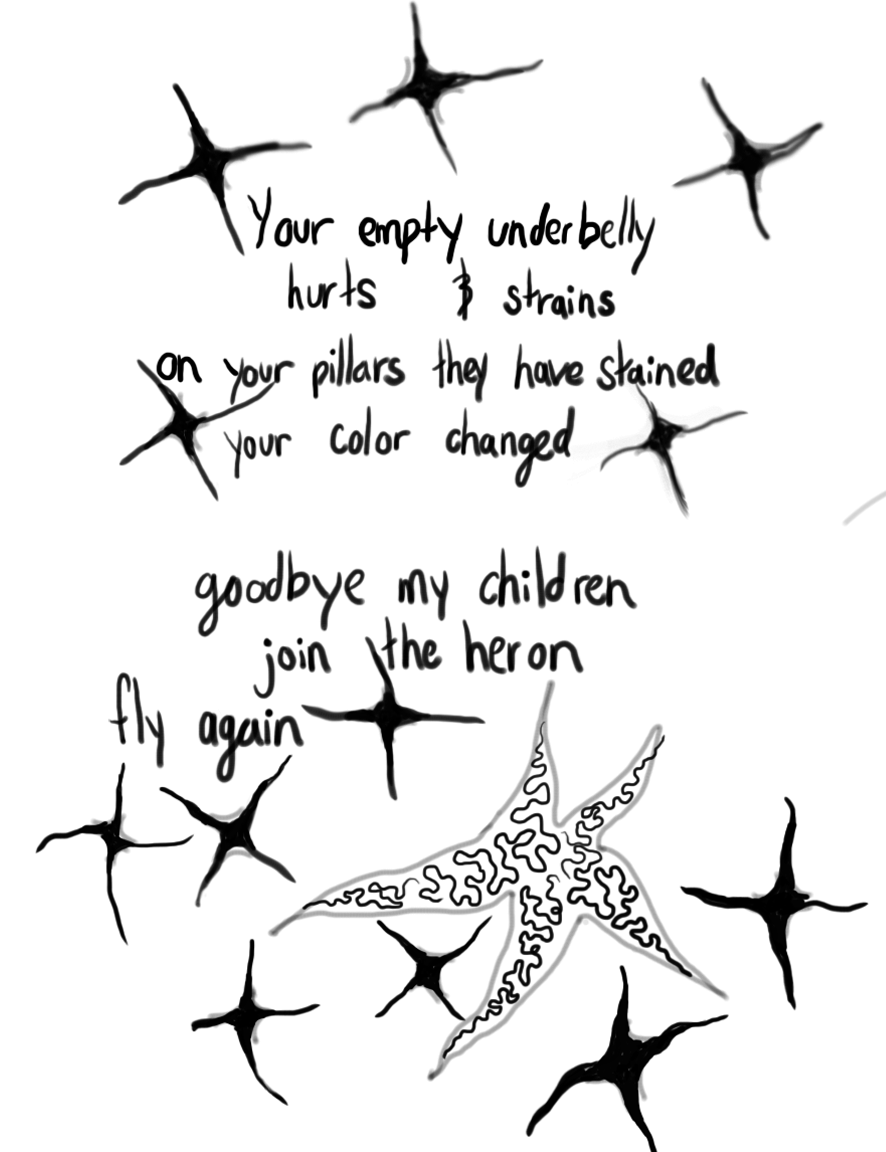 Your empty underbelly
hurts & strains
on your pillars they have stained
your color changed
goodbye my children
join the heron
fly again